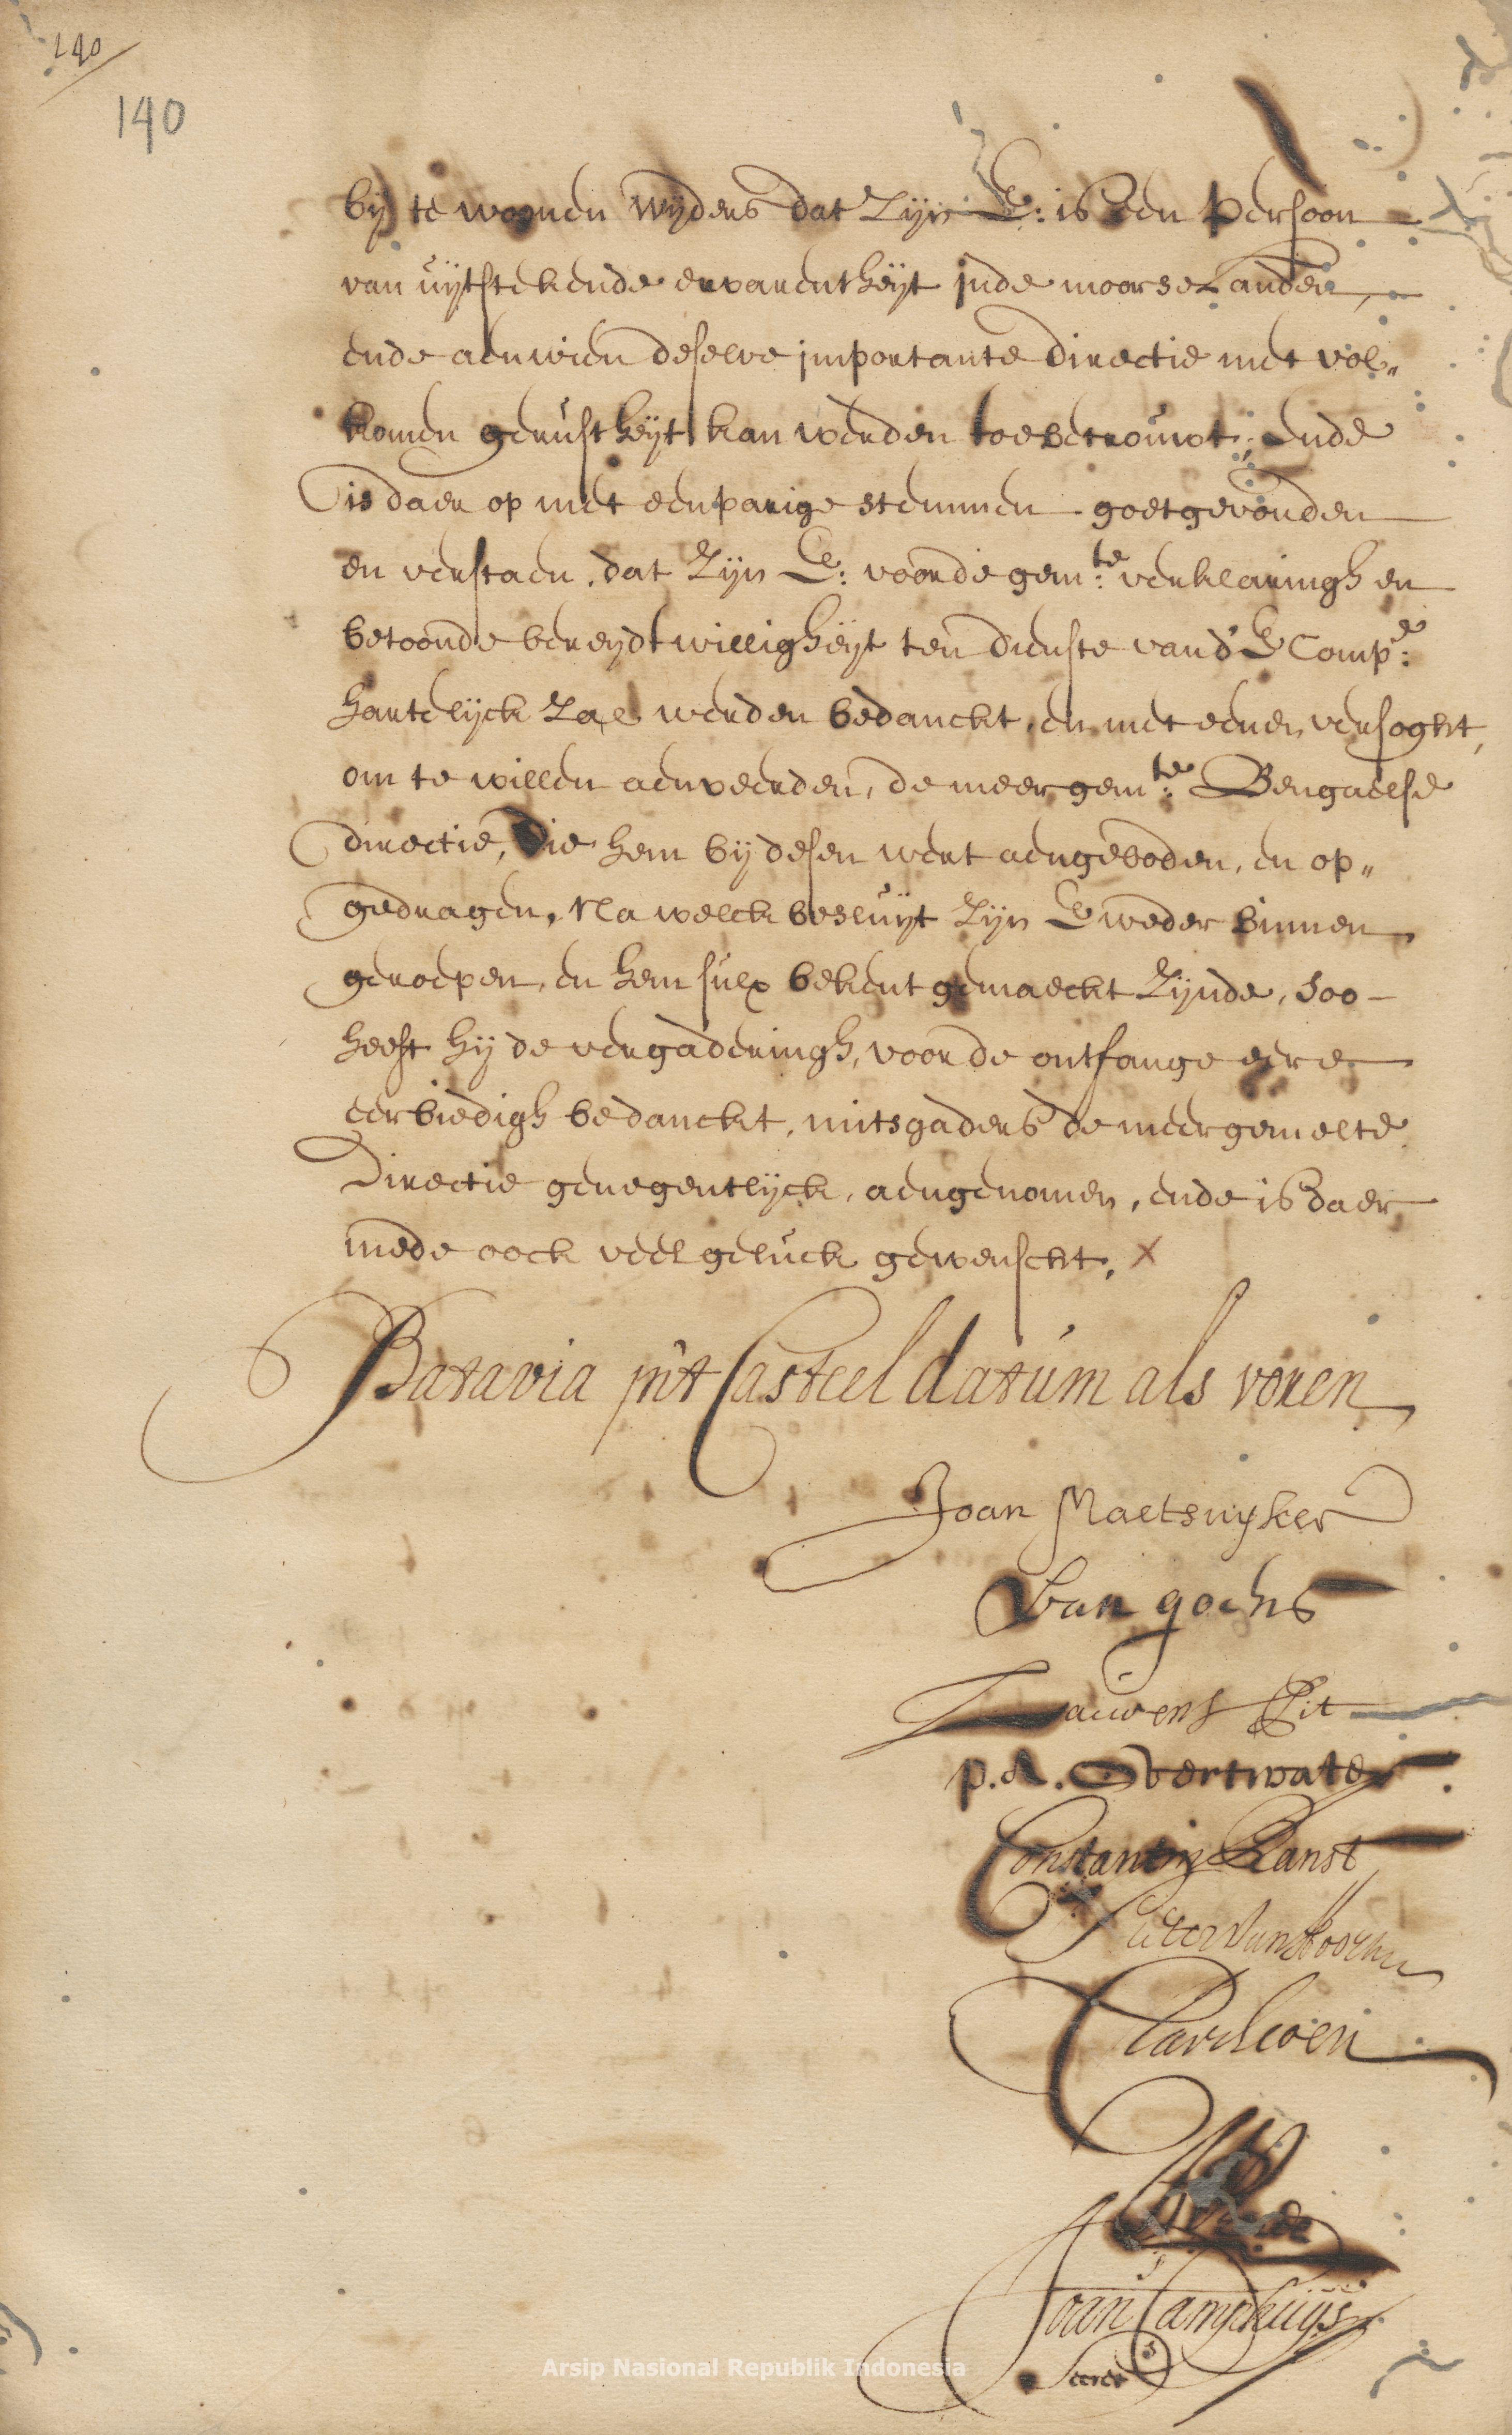 140
140
bij te woonen wijders dat Zijn E: is een persoon
van uijtstekende ervarentheijt inde moorse Landen,
ende aen wien deselve importante directie met vol„
komen gerustheijt kan werden toebetrouwt; ende
is daer op met eenparige stemmen goetgevonden
en verstaen, dat Zijn E: voor de gem:te verklaringh en
betoonde bereijdtwilligheijt ten dienste vand' E Comp:e
hartelijck Zal werden bedanckt, en met eenen versoght,
om te willen aenveerden, de meergem:te Bengaelse
directie, die hem bij desen wert aengeboden, en op„
gedragen, Na welck besluijt Zijn E weder binnen
geroepen, en hem sulx bekent gemaeckt Zijnde, soo
heeft hij de vergaderingh, voor de ontfange eere
eerbiedigh bedanckt, mitsgaders de meergemelte
Directie genegentlijck, aengenomen, ende is daer
mede oock veel geluck gewenscht. x
Batavia int Casteel datum als voren
Joan Maetsuyker
van goens
Lauwens Pit
p. A. Overtwater
Constantin Ranst
Pieter van Hoorn
Joan Camphuys
Secrets
Arsip Nasional Republik Indonesia